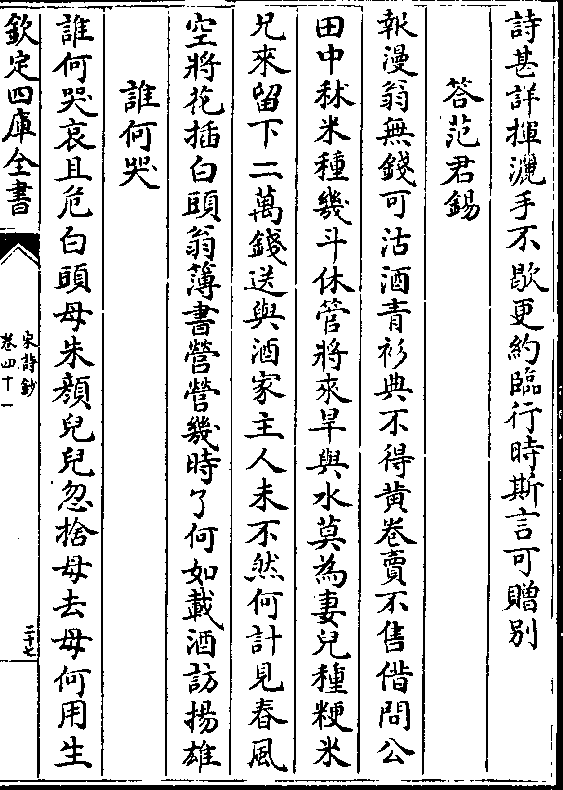 詩甚詳揮灑手不歇更約臨行時斯言可贈别
答范君錫
報漫翁無錢可沽酒青衫典不得黄卷賣不售借問公
田中秫米種幾斗休管將來旱與水莫為妻兒種粳米
兄來留下二萬錢送與酒家主人未不然何計見春風
空將花插白頭翁簿書營營幾時了何如載酒訪揚雄
誰何哭
誰何哭哀且危白頭母朱顔兒兒忽捨母去母何用生
欽定四庫全書
宋詩鈔
卷四十一
二十七